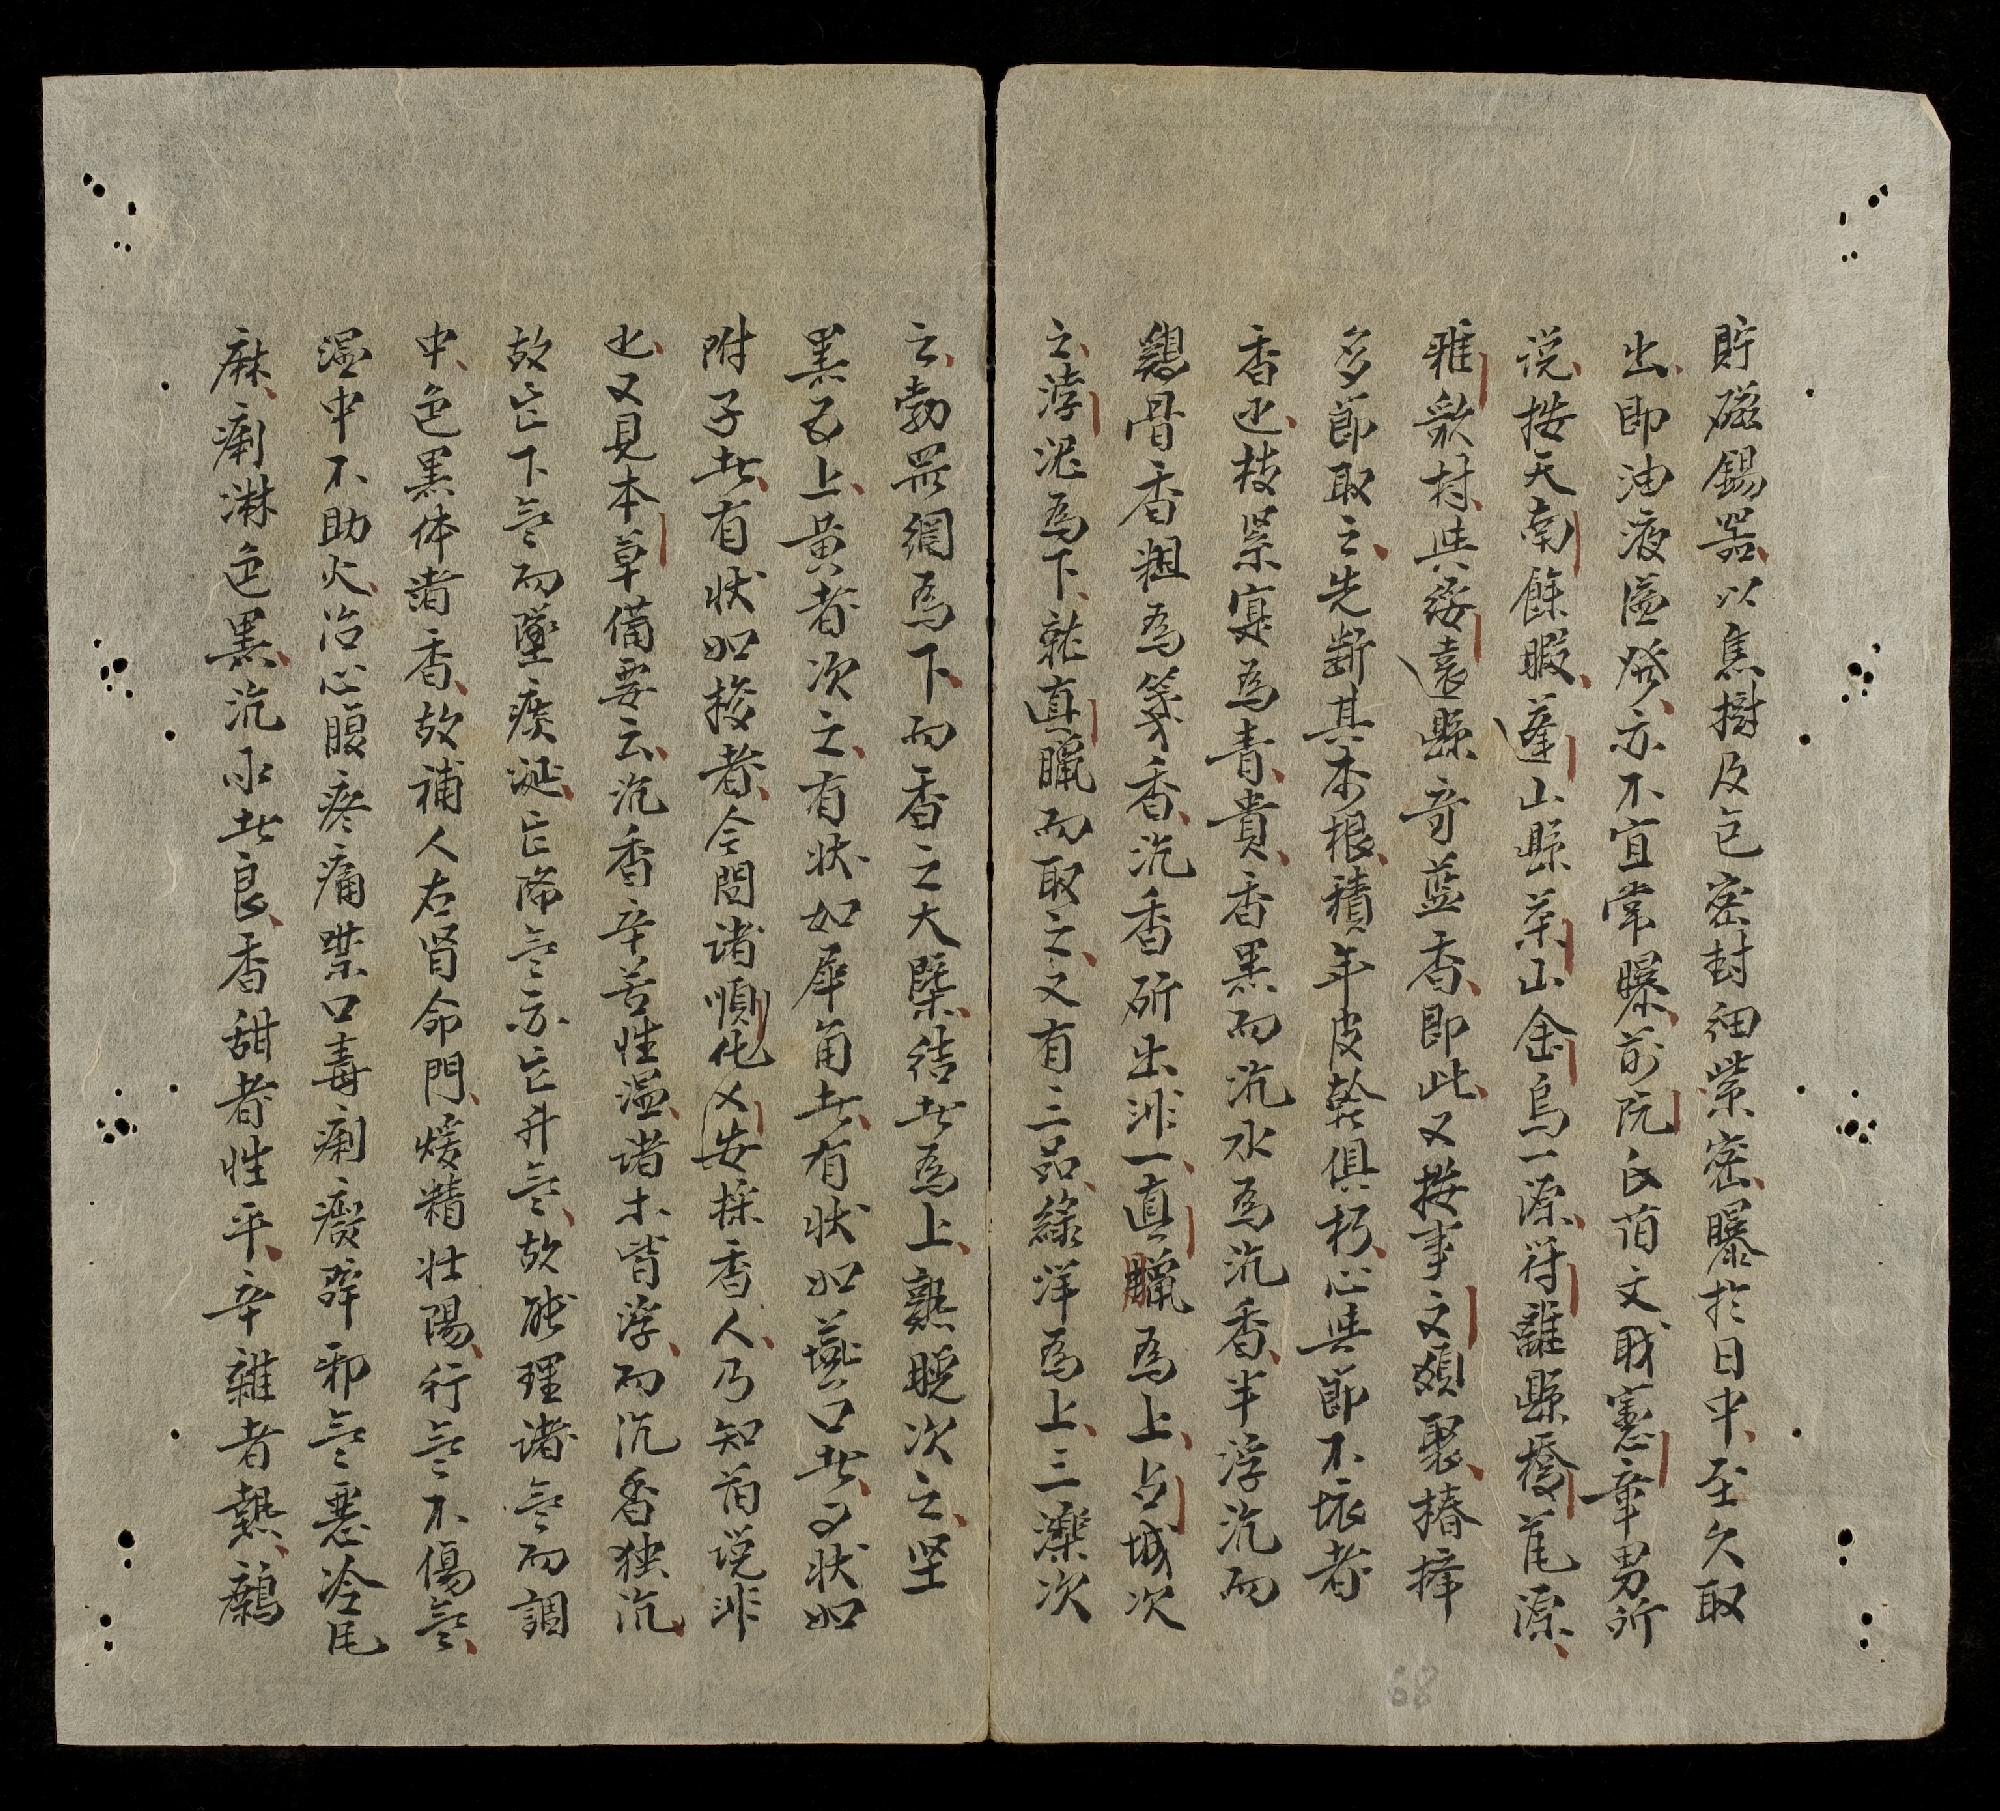 貯磁錫器以蕉樹及包密封細紫密曝於日中至久取
出即油液溢發亦不宜常曝前阮氏萌文戝憲章男所
说按天南餘暇蓬山縣茶山金烏一源符離縣橙芚源
雅歌村與绥遠縣奇藍香即此又按事文類聚椿擇
多節取之先断其本根積年皮幹俱朽心與節不壊者
香也枝紧寔為青貴香黒而沉水為沉香半浮沉而
鷄骨香粗為箋香沉香斫出非一真臘為上占城次
之渟泥為下就真臘而取之又有三品緑洋為上三濼次
之勃羅綱為下而香之大槩结者為上熟脱次之坚
黒為上黄者次之有状如犀角者有状如燕口者有状如
附子者有状如梭者今問诸順化义安採香人乃知前说非
也又見本草備要云沉香辛苦性温诸木皆浮而沉香独沉
故能下氣而墜痰涎能降氣亦能升氣故能理诸氣而調
中色黒体諸香故補人右肾命門煖精壮陽行氣不傷氣
温中不助火治心腹疼痛噤口毒痢癥癖邪氣悪冷風
麻痢淋色黒沉水者良香甜者性平辛雜者熱鷓